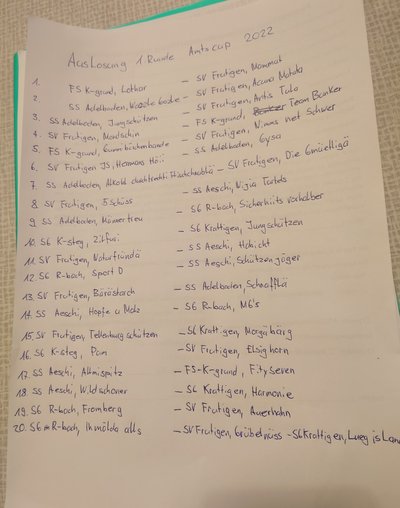 Auslosung 1 Runde Amtscup 2022
1. FS K-grund, Lothar - SV Frutigen, Mammut
2 SS Adelboden, - SV Frutigen, Acuna Matata
3. SS Adelboden, Jungschützen - SV Frutigen, Artis Talo
4. SV Frutigen, - FS K-grund, Team Bunker
5. FS K-grund, - SV Frutigen, Nimms net Schwer
6. SV Frutigen JS, Hermans Höli - SS Adelboden, Gysa
7. SS Adelboden, - SV Frutigen, Die Gmüetligä
8 SV Frutigen, 5 Schüss - SS Aeschi, Ninja Turtels
9. SS Adelboden, Römertreu - SG R-bach, Sicherheits vorhalber
10. SG K-steg, - SG Krattigen, Jungschützen
11. SV Frutigen, Naturfründä - SS Aeschi, Habicht
12. SG R-bach, Sport D - SS Aeschi, Schützenjäger
13. SV Frutigen, Bärestarch - SS Adelboden,
14. SS Aeschi, Hopfe u Malz - SG R-bach, MG's
15. SV Frutigen, Tellenburg schützen - SG Kratt.gen, Morgäbärg
16. SG K-steg, - SV Frutigen, Elsighorn
17. SS Aeschi, Allmispitz - FS-K-grund, Fityseven
18. SS Aeschi, Wildschoner - SG Krattigen, Harmonie
19. SG R-bach, Fromberg - SV Frutigen, Auerhahn
20. SG R-bach, - SV Frutigen, Grübelnüss - SG Krattigen, Lueg is Land